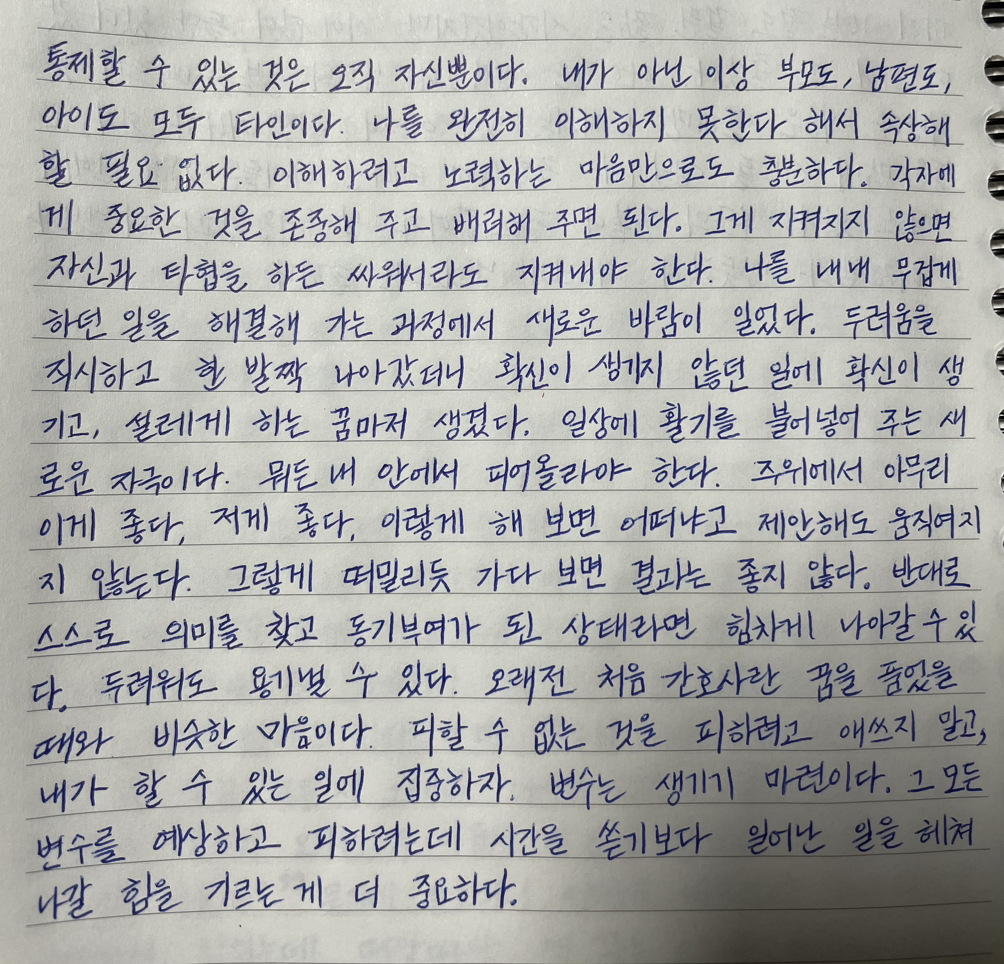 통제할 수 있는 것은 오직 자신뿐이다. 내가 아닌 이상 부모도, 남편도,
아이도 모두 타인이다. 나를 완전히 이해하지 못한다 해서 속상해
할 필요 없다. 이해하려고 노력하는 마음만으로도 충분하다. 각자에
게 중요한 것을 존중해 주고 배려해 주면 된다. 그게 지켜지지 않으면
자신과 타협을 하든 싸워서라도 지켜내야 한다. 나를 내내 무겁게
하던 일을 해결해 가는 과정에서 새로운 바람이 일었다. 두려움을
직시하고 한 발짝 나아갔더니 확신이 생기지 않던 일에 확신이 생
기고, 설레게 하는 꿈마저 생겼다. 일상에 활기를 불어넣어 주는 새
로운 자극이다. 뭐든 내 안에서 피어올라야 한다. 주위에서 아무리
이게 좋다, 저게 좋다, 이렇게 해 보면 어떠냐고 제안해도 움직여지
지 않는다. 그렇게 떠밀리듯 가다 보면 결과는 좋지 않다. 반대로
스스로 의미를 찾고 동기부여가 된 상태라면 힘차게 나아갈 수 있
다. 두려워도 용기낼 수 있다. 오래전 처음 간호사란 꿈을 품었을
때와 비슷한 마음이다. 피할 수 없는 것을 피하려고 애쓰지 말고,
내가 할 수 있는 일에 집중하자. 변수는 생기기 마련이다. 그 모든
변수를 예상하고 피하려는데 시간을 쏟기보다 일어난 일을 헤쳐
나갈 힘을 기르는 게 더 중요하다.